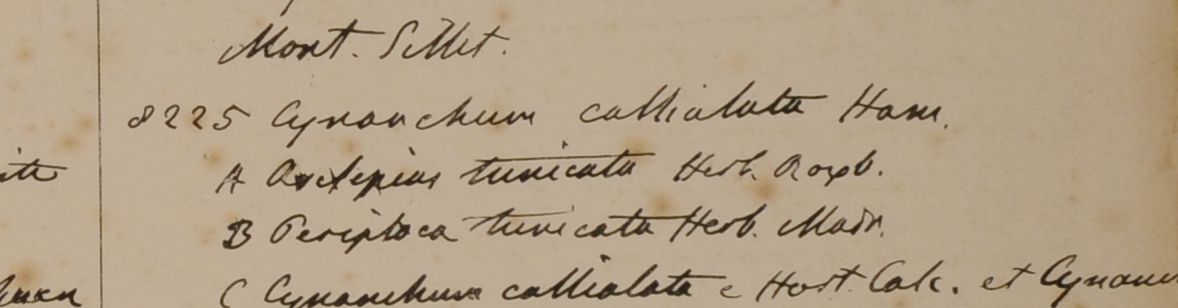 Mont. Sillet.
8225 Cynanchum callialata Ham.
A Asclepias tunicata Herb. Roxb.
B Periploca tunicata Herb. Madr.
C Cynanchum callialata e Hort Calc. et Cynanc